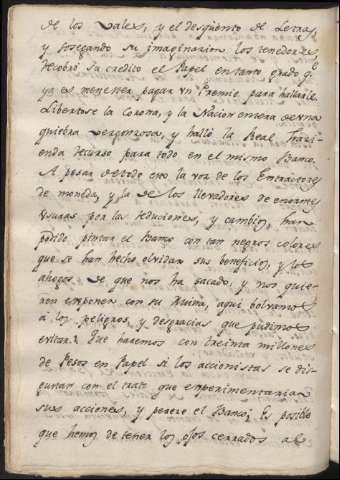 de los Vales, y el desqüento de Letras,
y sosegando su imaginacion los tenedores
recobró su credito el Papel en tanto grado q.e
ya es menester pagar un Premio para hallarle.
Libertose la Corona, y la Nacion entera de una
quiebra vergonzosa, y halló la Real Hazi-
enda recurso para todo en el mismo Banco.
A pesar de todo esto la voz de los Extractores
de moneda, y la de los llevadores de enormes
usuras por las reduciones, y cambios, han
podido pintar el Banco con tan negros colores
que se han hecho olvidar sus beneficios, y los
ahogos de que nos ha sacado, y nos quie-
ren exponer con su Ruina, a que bolvamos
á los peligros, y desgracias que pudimos
evitar. Que haremos con treinta millones
de Pesos en Papel si los accionistas se dis-
gustan con el trato que experimentarian
sus acciones, y perece el Banco? Es posible
que hemos de tener los ojos cerrados al